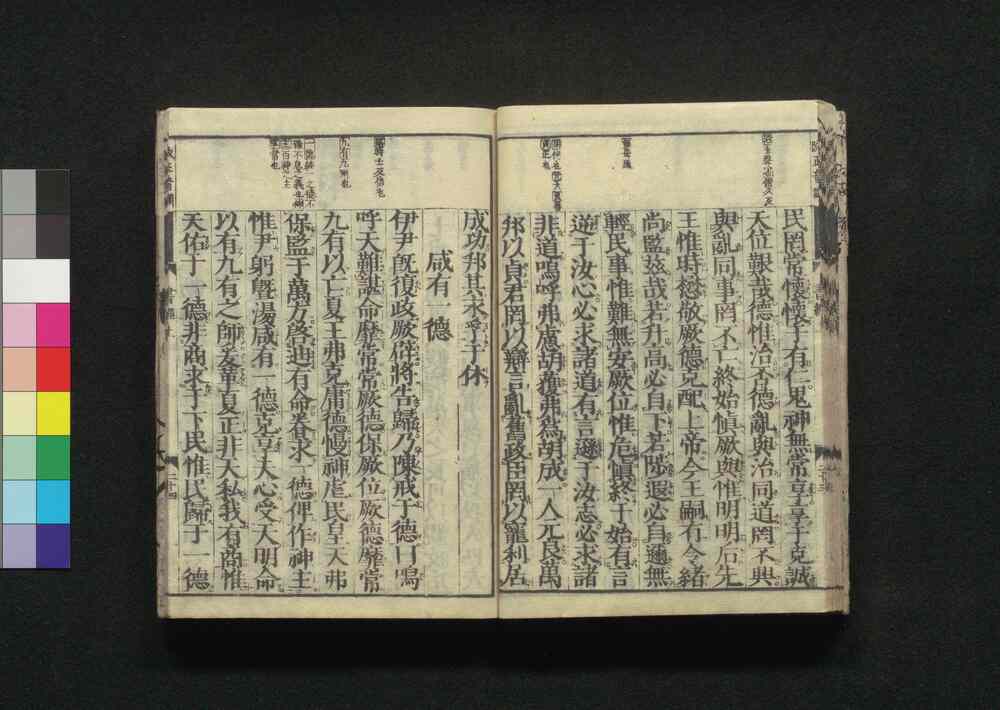 民罔常懷懷于有仁鬼神無常享享于克誠
天位艱哉德惟治否德亂與治同道罔不興
與亂同事罔不亡終始慎厥與惟明明后先
王惟時懋敬厥德克配上帝今王嗣有令緒
尚監茲哉若升高必自下若陟遐必自邇無
輕民事惟難無安厥位惟危慎終于始有言
逆于汝心必求諸道有言遜于汝志必求諸
非道嗚呼弗慮胡獲弗爲胡成一人元良萬
邦以貞君罔以辯言亂舊政臣罔以寵利居
成功邦其永孚于休
咸有一德
伊尹旣復政厥辟將告歸乃陳戒于德曰嗚
呼天難諶命靡常常厥德保厥位厥德靡常
九有以亡夏王弗克庸德慢神虐民皇天弗
保監于萬方啓迪有命眷求一德俾作神主
惟尹躬曁湯咸有一德克享天心受天明命
以有九有之師爰革夏正非天私我有商惟
天佑于一德非商求于下民惟民歸于一德
二十四